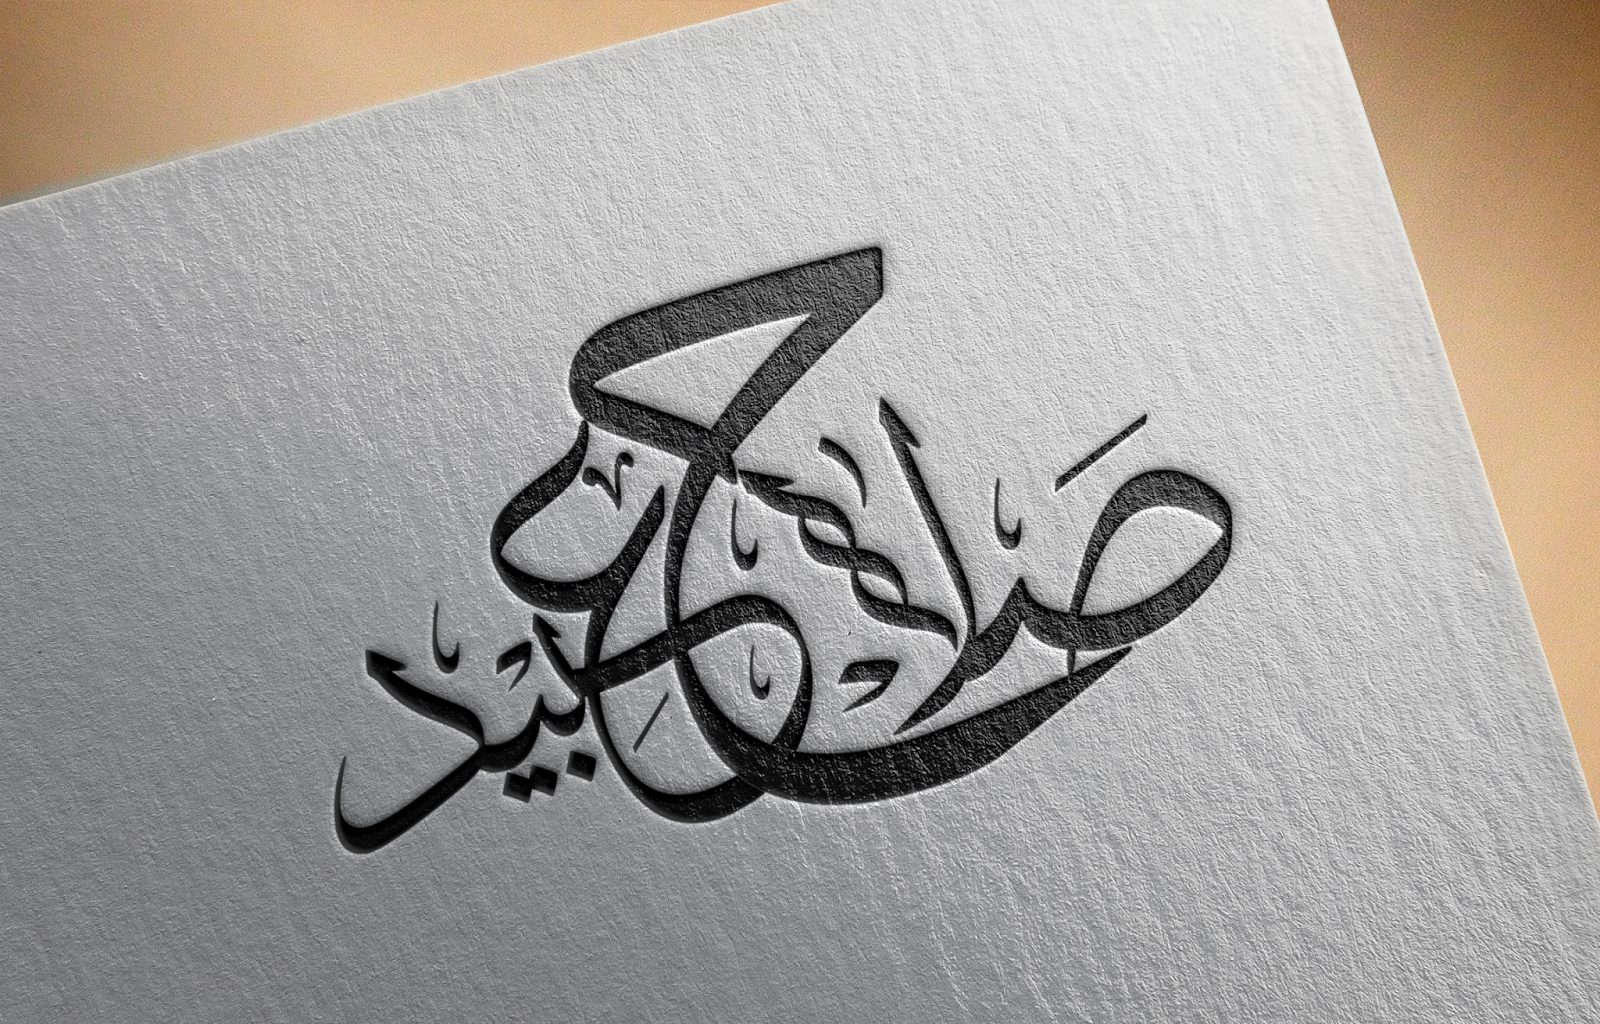 صلاح عبيد